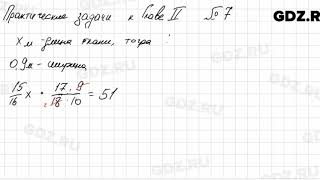 Практические задачи к Главе II №7
GDZ.R
x м - длина ткани, тогда :
0,9м - ширина
15/16 x · 17 · 9 / 18 · 10 = 51